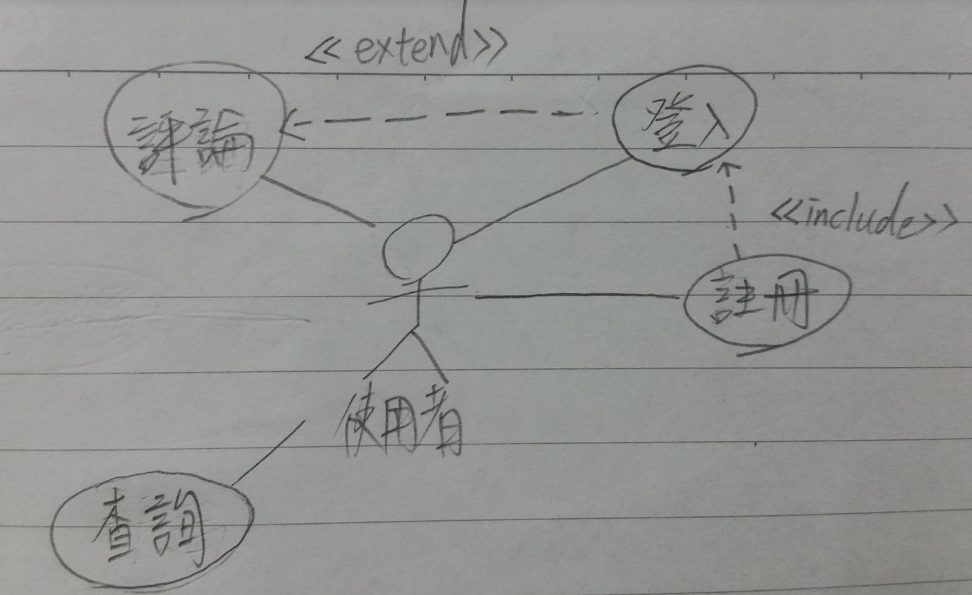 <<extend>>
評論
登入
<<include>>
註冊
使用者
查詢